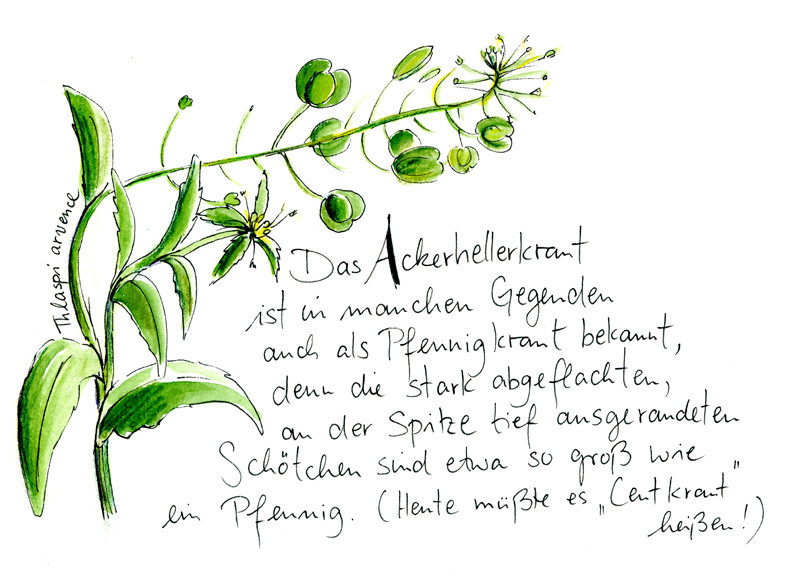 Thlaspi arvence
Das Ackerhellerkraut
ist in manchen Gegenden
auch als Pfennigkraut bekannt,
denn die stark abgeflachten,
an der Spitze tief ausgerandeten
Schötchen sind etwa so groß wie
ein Pfennig. (Heute müßte es „Centkraut"
heißen!)